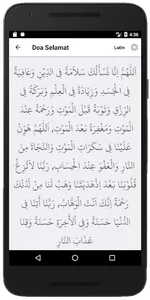 4:36
Doa Selamat
Latin
اَللّٰهُمَّ اِنَّا نَسْأَلُكَ سَلَامَةً فِى الدِّيْنِ وَعَافِيَةً
فِى الْجَسَدِ وَزِيَادَةً فِى الْعِلْمِ وَبَرَكَةً فِى
الرِّزْقِ وَتَوْبَةً قَبْلَ الْمَوْتِ وَرَحْمَةً عِنْدَ
الْمَوْتِ وَمَغْفِرَةً بَعْدَ الْمَوْتِ، اَللّٰهُمَّ هَوِّنْ
عَلَيْنَا فِى سَكَرَاتِ الْمَوْتِ وَالنَّجَاةَ مِنَ
النَّارِ وَالْعَفْوَ عِنْدَ الْحِسَابِ، رَبَّنَا لاَتُزِغْ
قُلُوْبَنَا بَعْدَ اِذْهَدَيْتَنَا وَهَبْ لَنَا مِنْ لَدُنْكَ
رَحْمَةً اِنَّكَ اَنْتَ الْوَهَّابُ، رَبَّنَا اٰتِنَا فِى
الدُّنْيَا حَسَنَةً وَفِى اْلأٰخِرَةِ حَسَنَةً وَقِنَا
عَذَابَ النَّارِ